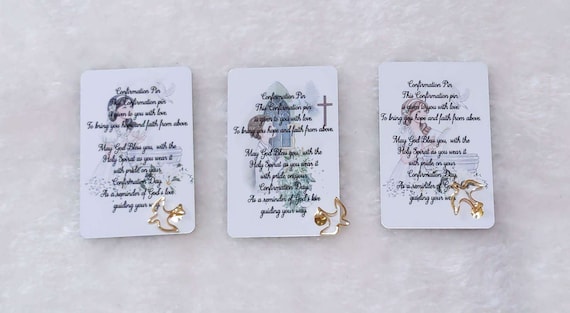 Confirmation Pin
This Confirmation pin
is given to you with love
To bring you hope and faith from above.
May God Bless you, with the
Holy Spirat as you wear it
with pride on your
Confirmation Day.
As a reminder of God's love
guiding your
Confirmation Pin
This Confirmation pin
is given to you with love
To bring you hope and faith from above.
May God Bless you, with the
Holy Spirat as you wear it
with pride on your
Confirmation Day.
As a reminder of God's love
guiding your way.
Confirmation Pin
This Confirmation pin
is given to you with love
To bring you hope and faith from above.
May God Bless you, with the
Holy Spirat as you wear it
with pride on your
Confirmation Day.
As a reminder of God's love
guiding your